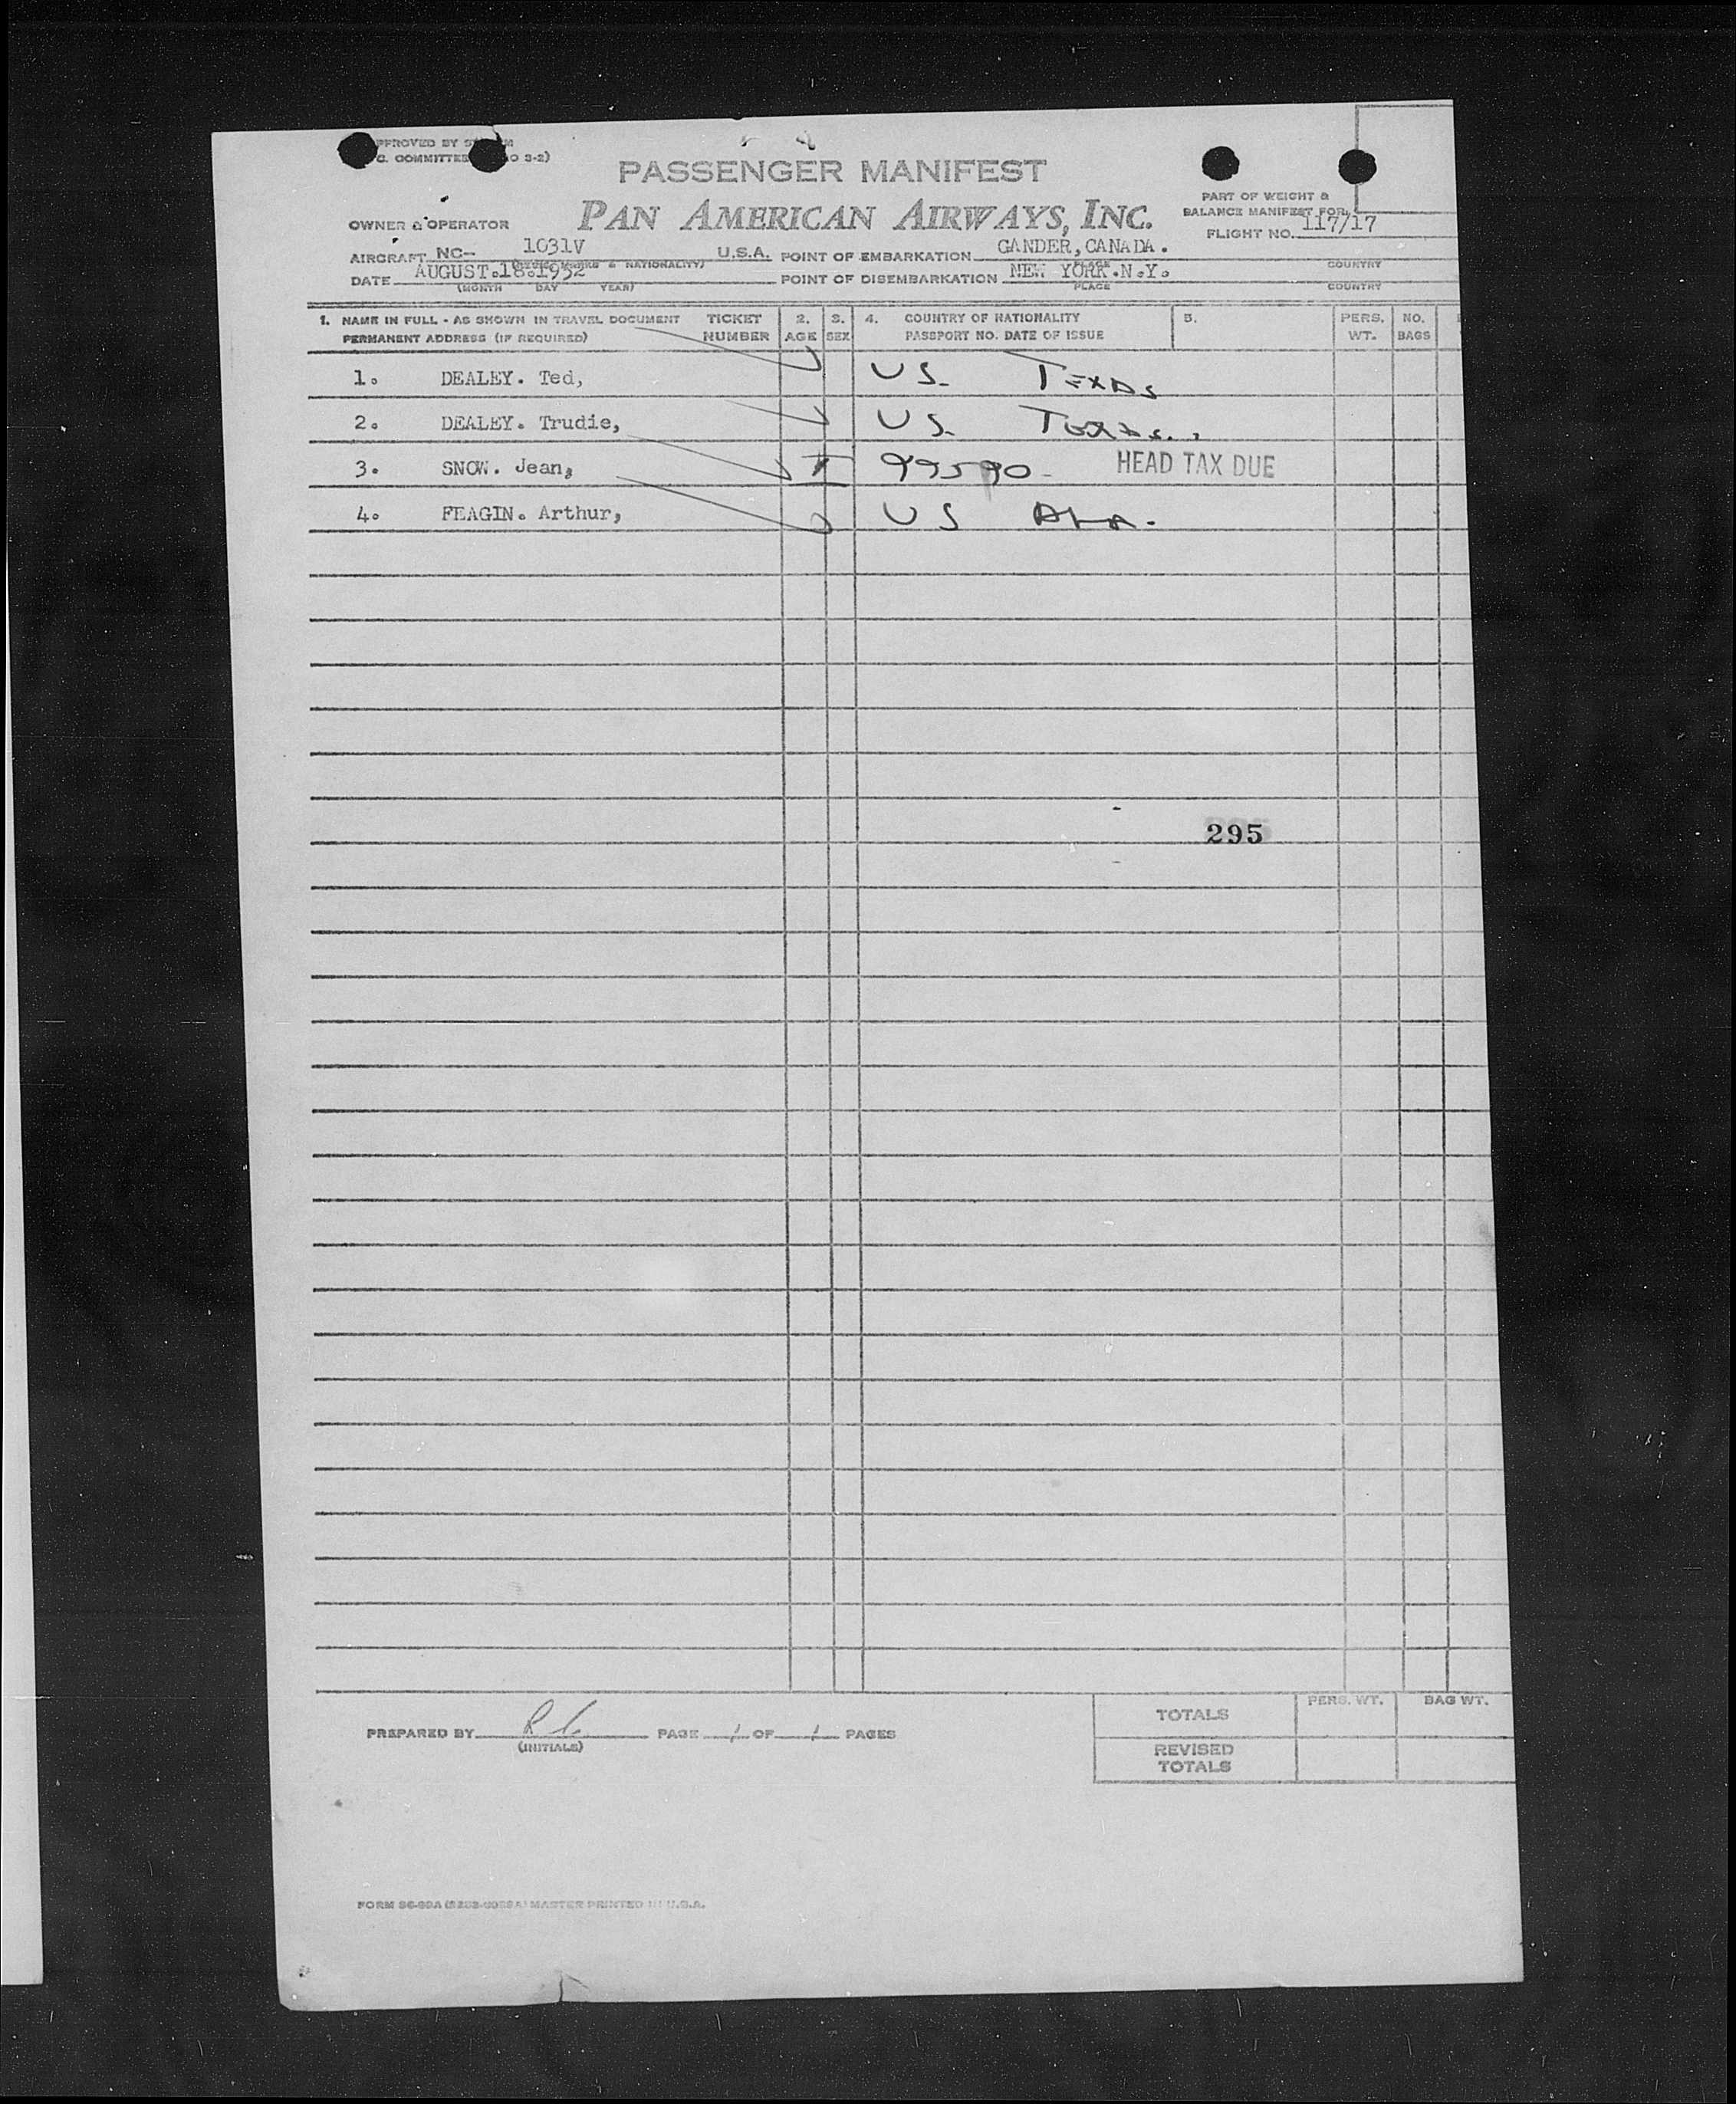 PPROVED BY
C. COMMITTEE O 3-2)
PASSENGER MANIFEST
PAN AMERICAN AIRWAYS, INC.
PART OF WEIGHT &
BALANCE MANIFEST FOR
FLIGHT NO. 117/17
OWNER & OPERATOR
AIRCRAFT NC- 1031V U.S.A. POINT OF EMBARKATION GANDER, CANADA.
& NATIONALITY) PLACE COUNTRY
DATE AUGUST.18.1952 POINT OF DISEMBARKATION NEW YORK.N.Y.
(MONTH DAY YEAR) PLACE COUNTRY
1. NAME IN FULL - AS SHOWN IN TRAVEL DOCUMENT TICKET 2. 3. 4. COUNTRY OF NATIONALITY 5. PERS. NO.
PERMANENT ADDRESS (IF REQUIRED) NUMBER AGE SEX PASSPORT NO. DATE OF ISSUE WT. BAGS
1. DEALEY. Ted, US. TEXAS
2. DEALEY. Trudie, US. Texas.
3. SNOW. Jean, 99590 HEAD TAX DUE
4. FEAGIN. Arthur, US ALA.
295
PREPARED BY PAGE 1 OF 1 PAGES
(INITIALS)
PERS. WT. BAG WT.
TOTALS
REVISED
TOTALS
MASTER PRINTED IN U.S.A.